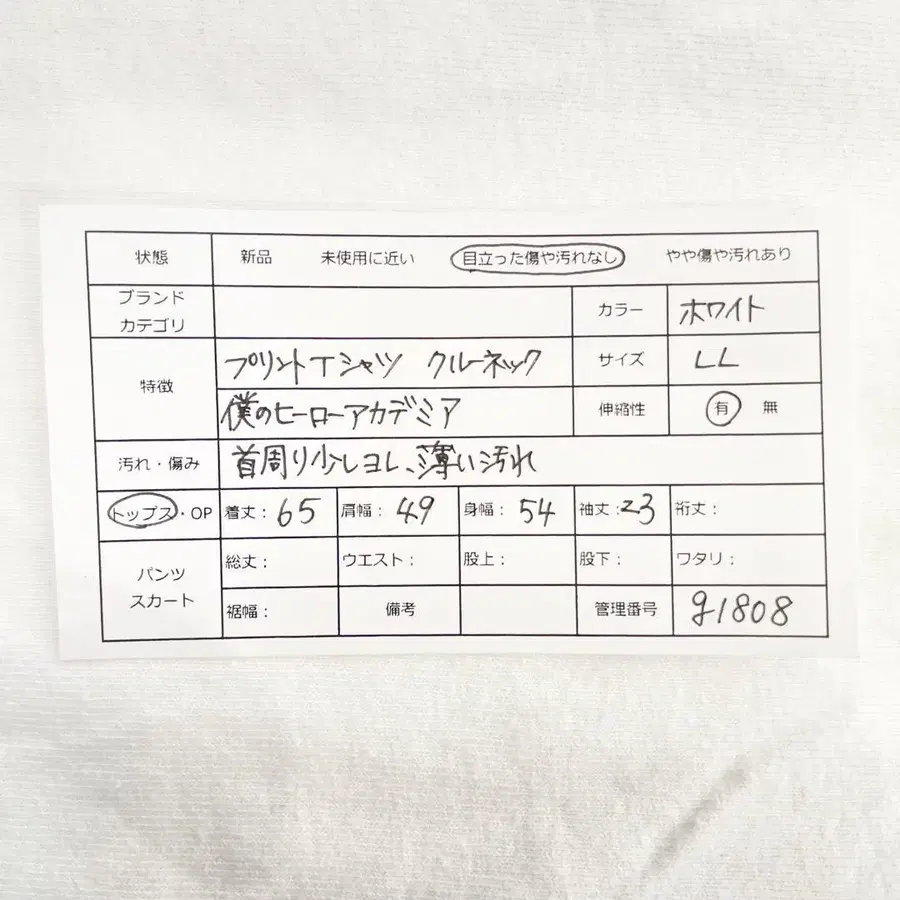 状態 新品 未使用に近い 目立った傷や汚れなし やや傷や汚れあり
ブランド
カテゴリ
カラー ホワイト
特徴
プリントTシャツ クルーネック
サイズ LL
僕のヒーローアカデミア
伸縮性 有 無
汚れ・傷み 首周り少しヨレ、薄い汚れ
トップス・OP 着丈:65 肩幅:49 身幅:54 袖丈:23 裄丈:
パンツ
スカート
総丈: ウエスト: 股上: 股下: ワタリ:
裾幅: 備考 管理番号 g1808